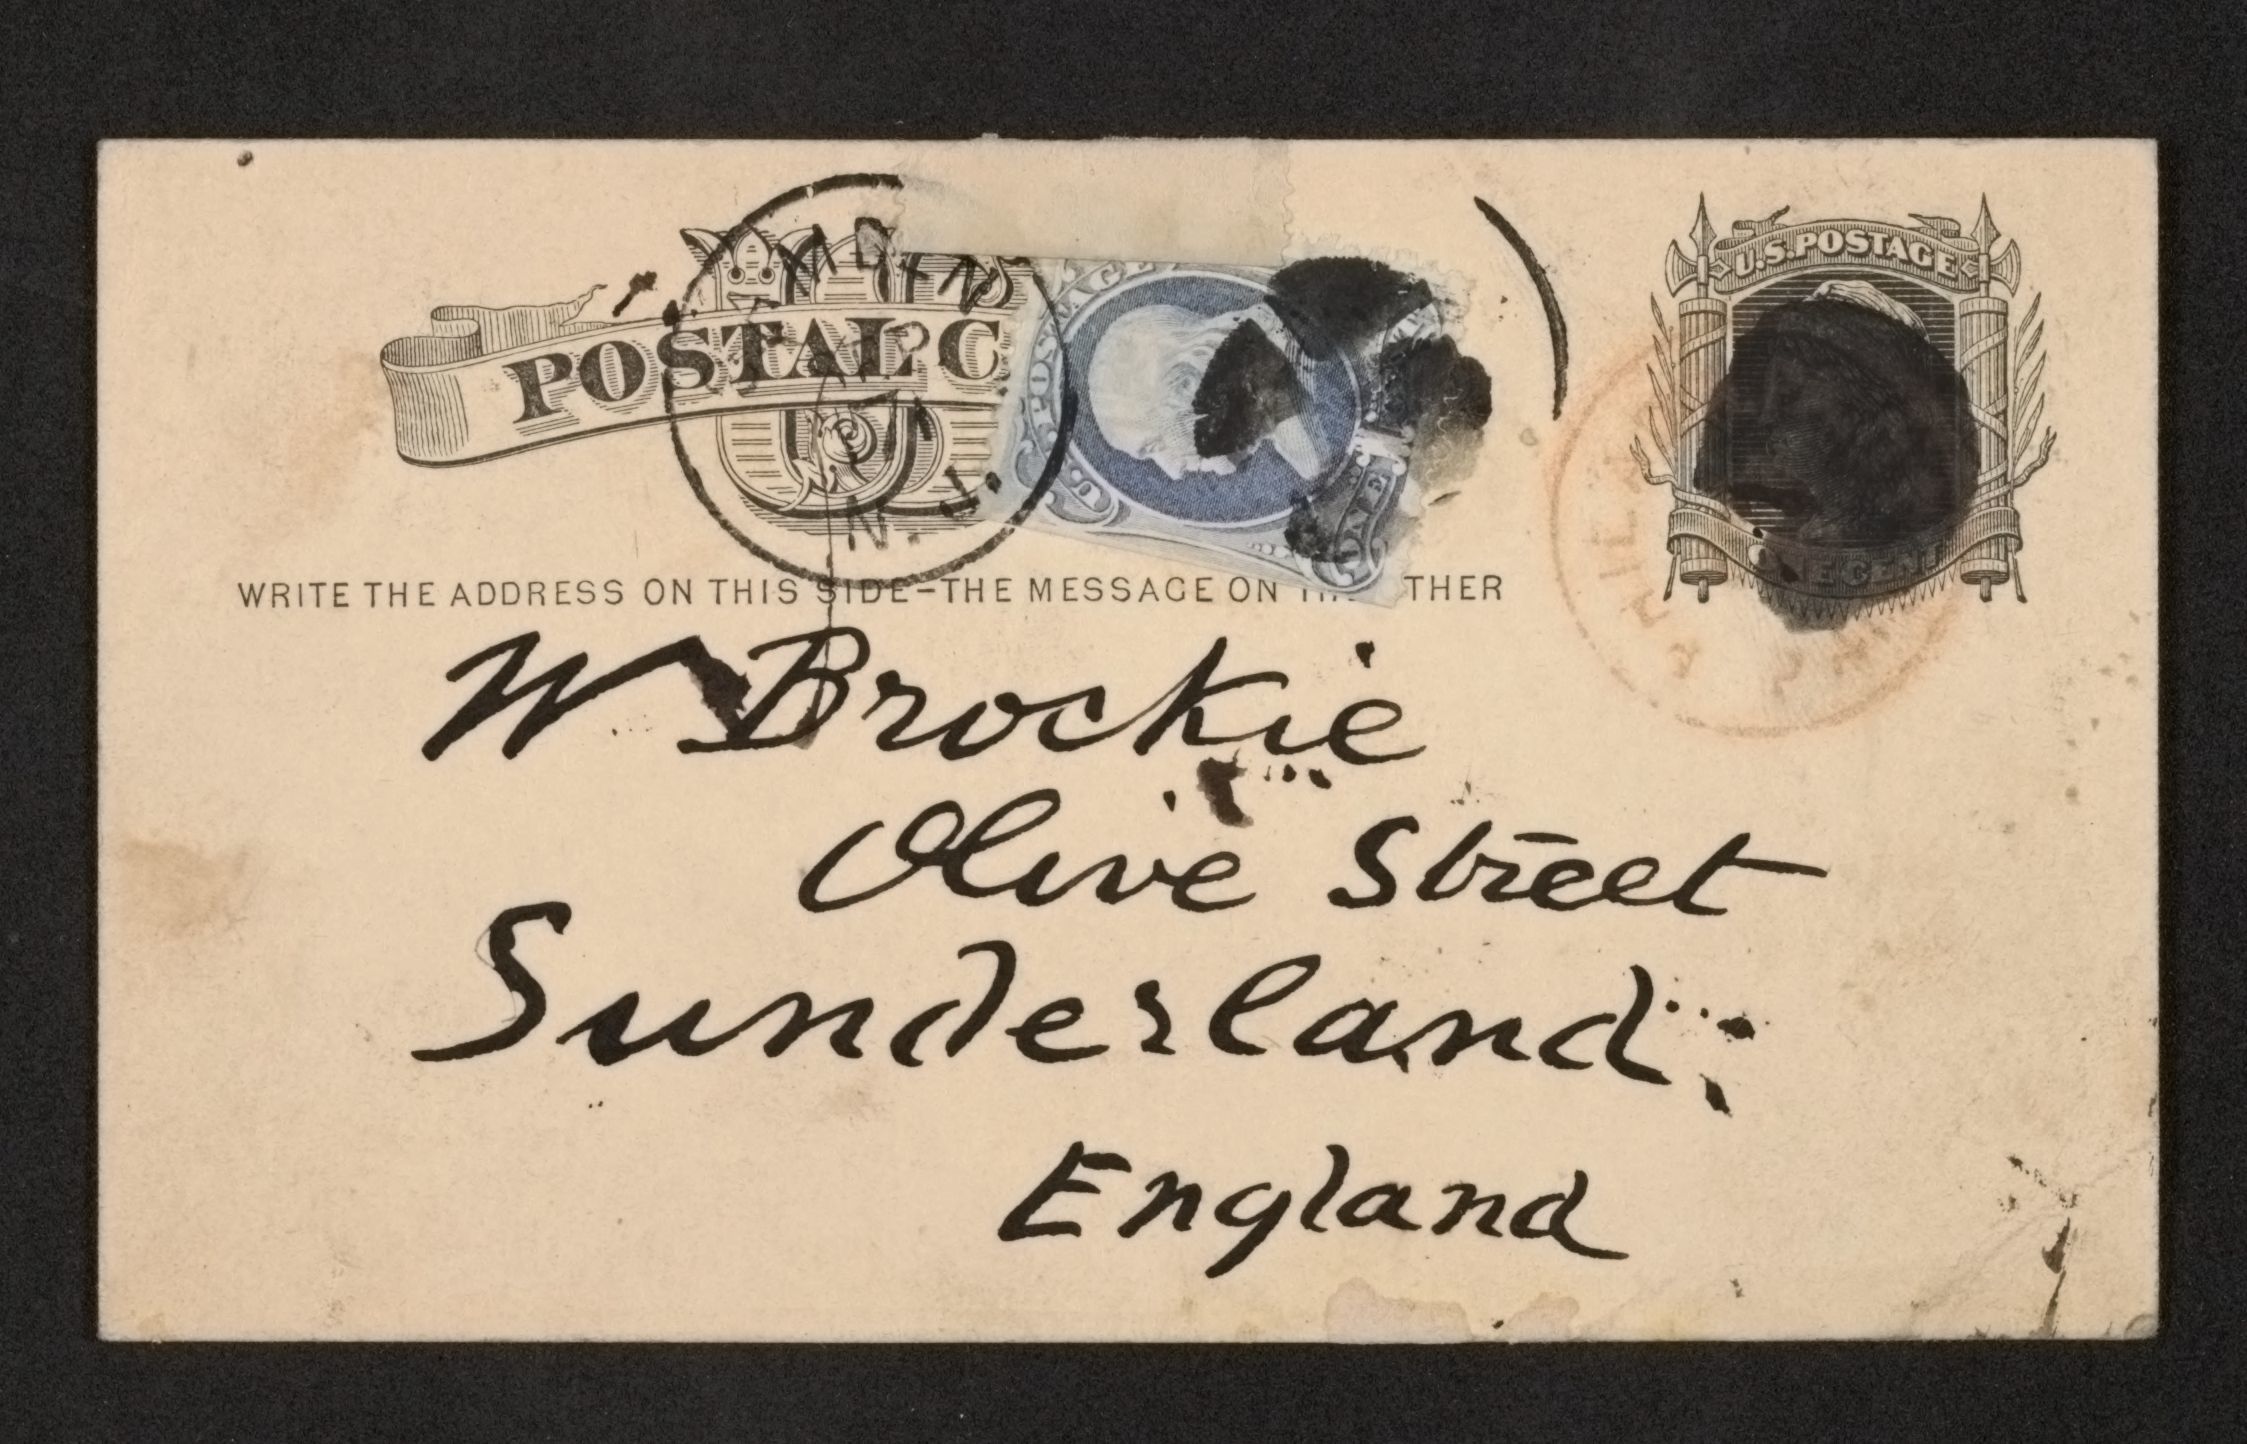 U.S. POSTAGE
ONE CENT
POSTAL C
CAMDEN
N.J.
POSTAGE
WRITE THE ADDRESS ON THIS SIDE-THE MESSAGE ON THE OTHER
W Brockie
Olive Street
Sunderland
England